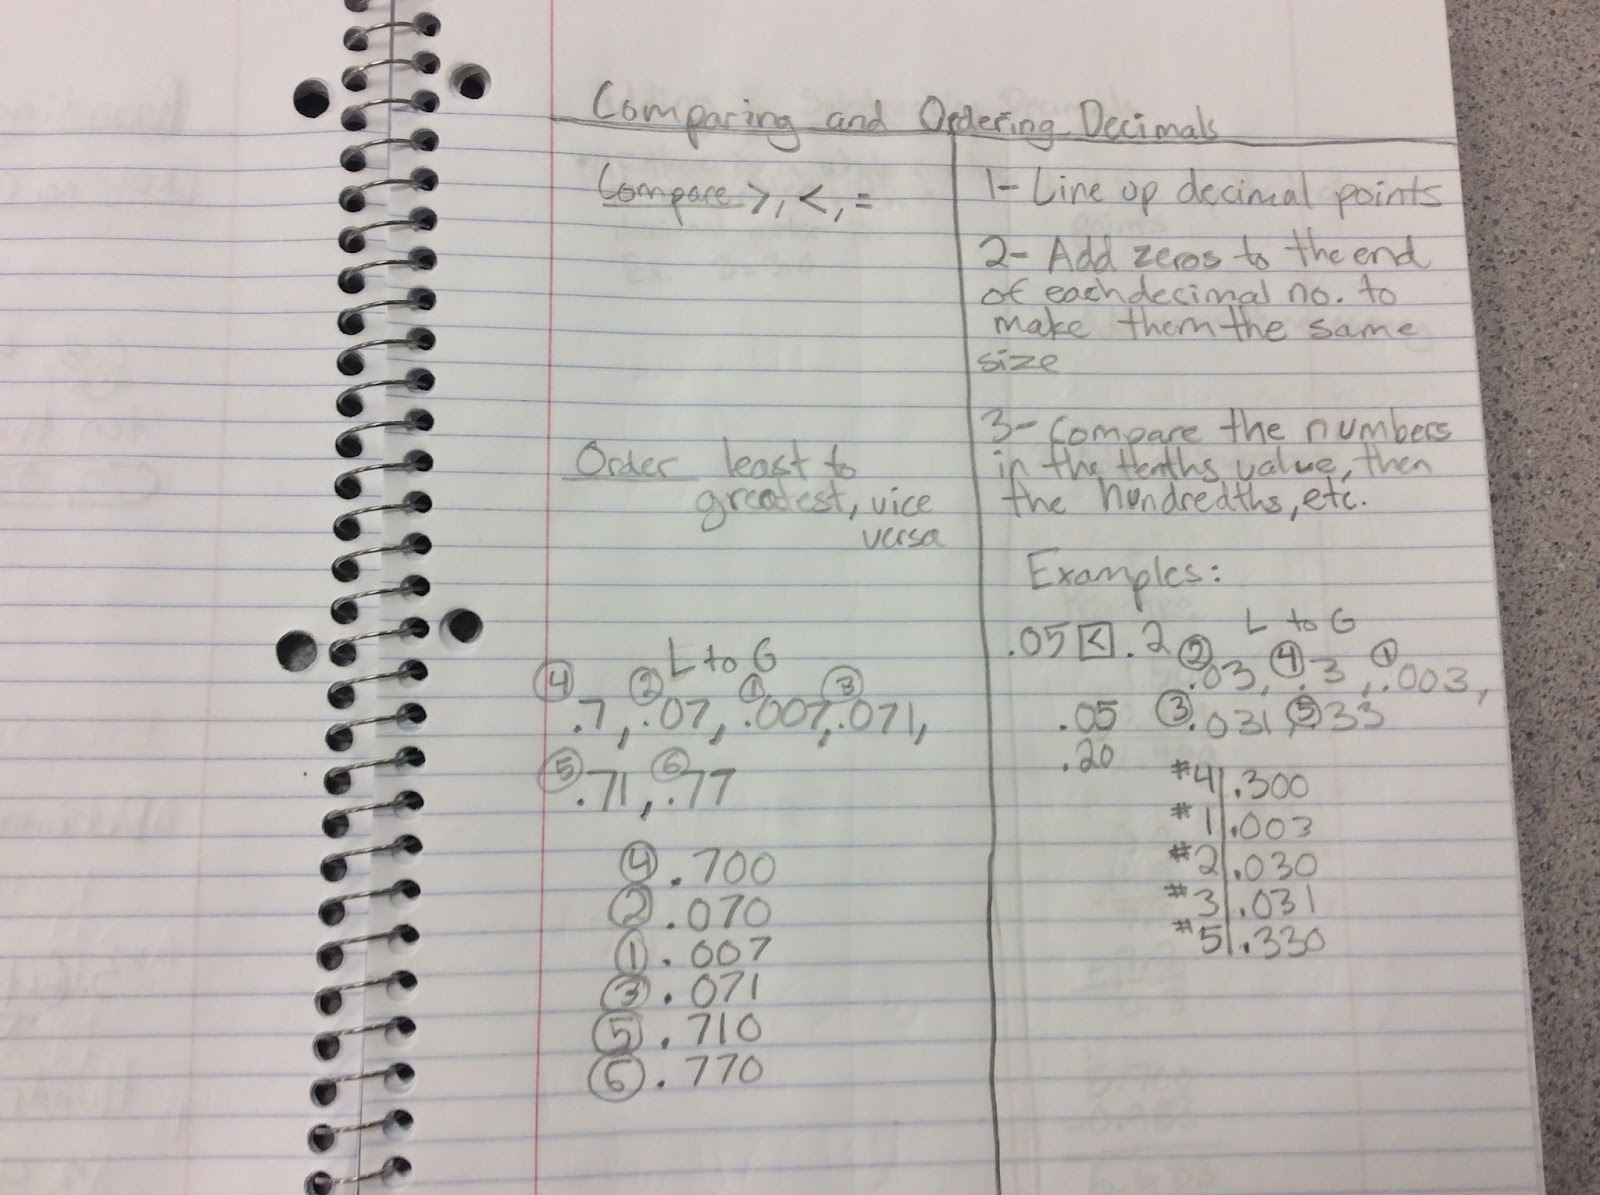 Comparing and Ordering Decimals
Compare >, <, =
Order least to
greatest, vice
versa
L to G
④ ② ① ③
.7, .07, .007, .071,
⑤ .71, ⑥ .77
④ .700
② .070
① .007
③ .071
⑤ .710
⑥ .770
1- Line up decimal points
2- Add zeros to the end
of each decimal no. to
make them the same
size
3- Compare the numbers
in the tenths value, then
the hundredths, etc.
Examples:
.05 < .2
.05
.20
L to G
② .03, ④ .3, ① .003,
③ .031, ⑤ 33
#4 .300
#1 .003
#2 .030
#3 .031
#5 .330